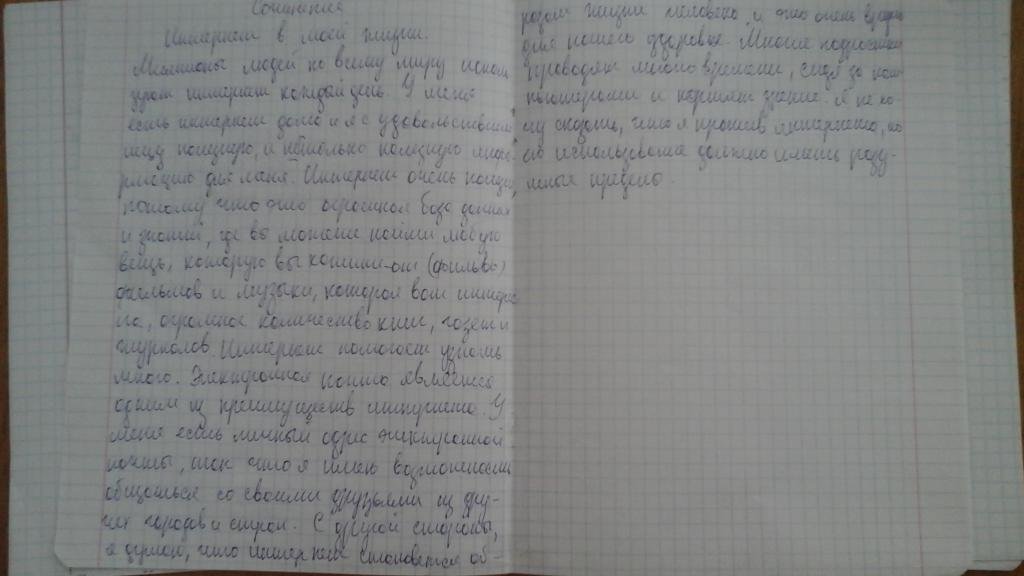 Сочинение
Интернет в моей жизни.
Миллионы людей по всему миру исполь
зуют интернет каждый день. У меня
есть интернет дома и я с удовольствием
ищу полезную, и не только полезную инфо
рмацию для меня. Интернет очень полезен,
потому что это огромная база данных
и знаний, где вы можете найти любую
вещь, которую вы хотите-от (фильмо)
фильмов и музыки, которая вам интере
на, огромное количество книг, газет и
журналов. Интернет помогает узнать
много. Электронная почта является
одним из преимуществ интернета. У
меня есть личный адрес электронной
почты, так что я имею возможность
общаться со своими друзьями из дру-
гих городов и стран. С другой стороны,
я думаю, что интернет становится об-
разом жизни человека и это очень вредно
для нашего здоровья. Многие подростки
проводят много времени, сидя за ком
пьютерами и портят зрение. Я не хо-
чу сказать, что я против интернета, но
его использование должно иметь разу-
мные пределы.